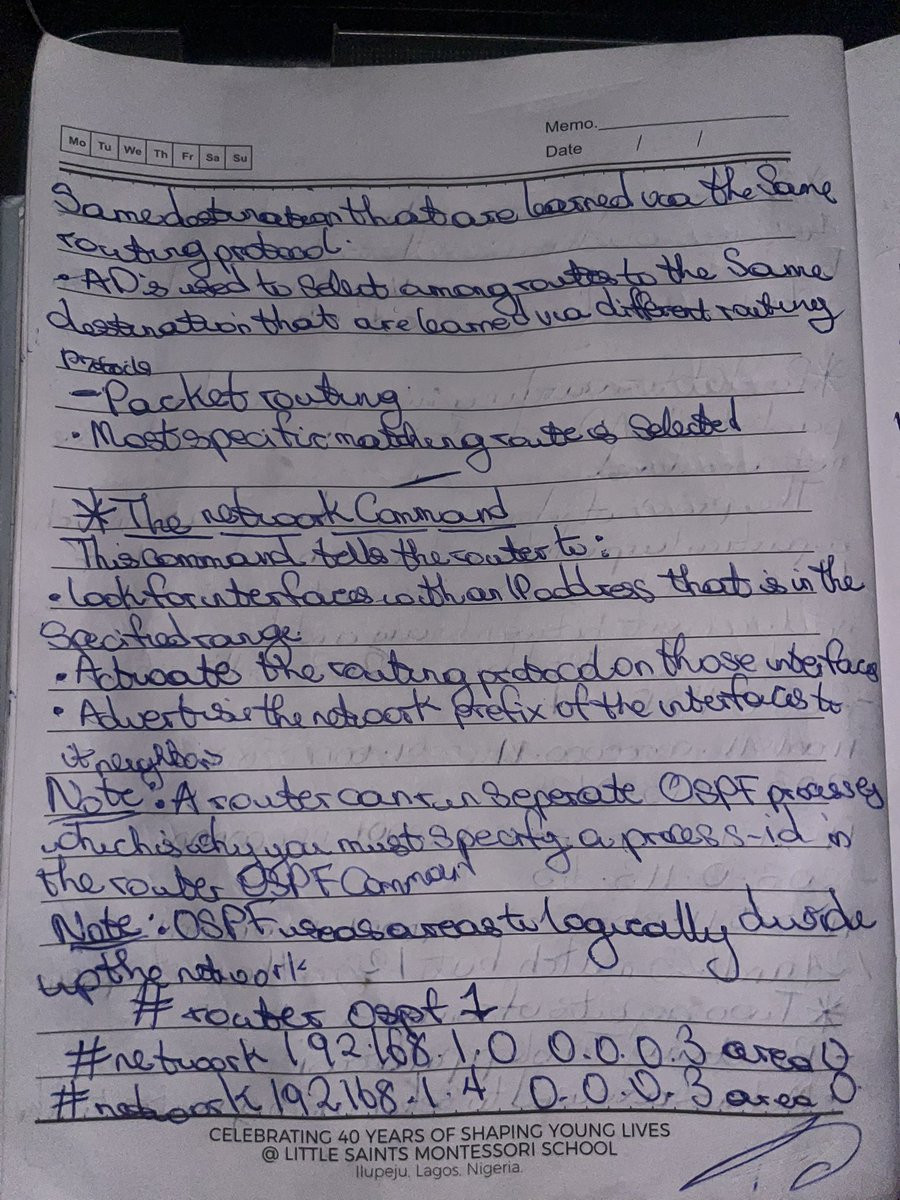 Memo.
Mo Tu We Th Fr Sa Su
Date / /
Same destination that are learned via the Same
routing protocol.
• AD is used to select among routes to the Same
destination that are learned via different routing
protocols
- Packet routing
• Most specific matching route is Selected
* The network Command
This command tells the router to:
• Look for interfaces with an IP address that is in the
Specified range
• Activate the routing protocol on those interfaces
• Advertise the network prefix of the interfaces to
it neighbors
Note: A router can run Seperate OSPF processes
which is why you must specify a process-id in
the router OSPF Command
Note: OSPF uses areas to logically divide
up the network
# router ospf 1
#network 192.168.1.0 0.0.0.3 area 0
#network 192.168.1.4 0.0.0.3 area 0
CELEBRATING 40 YEARS OF SHAPING YOUNG LIVES
@ LITTLE SAINTS MONTESSORI SCHOOL
Ilupeju, Lagos. Nigeria.